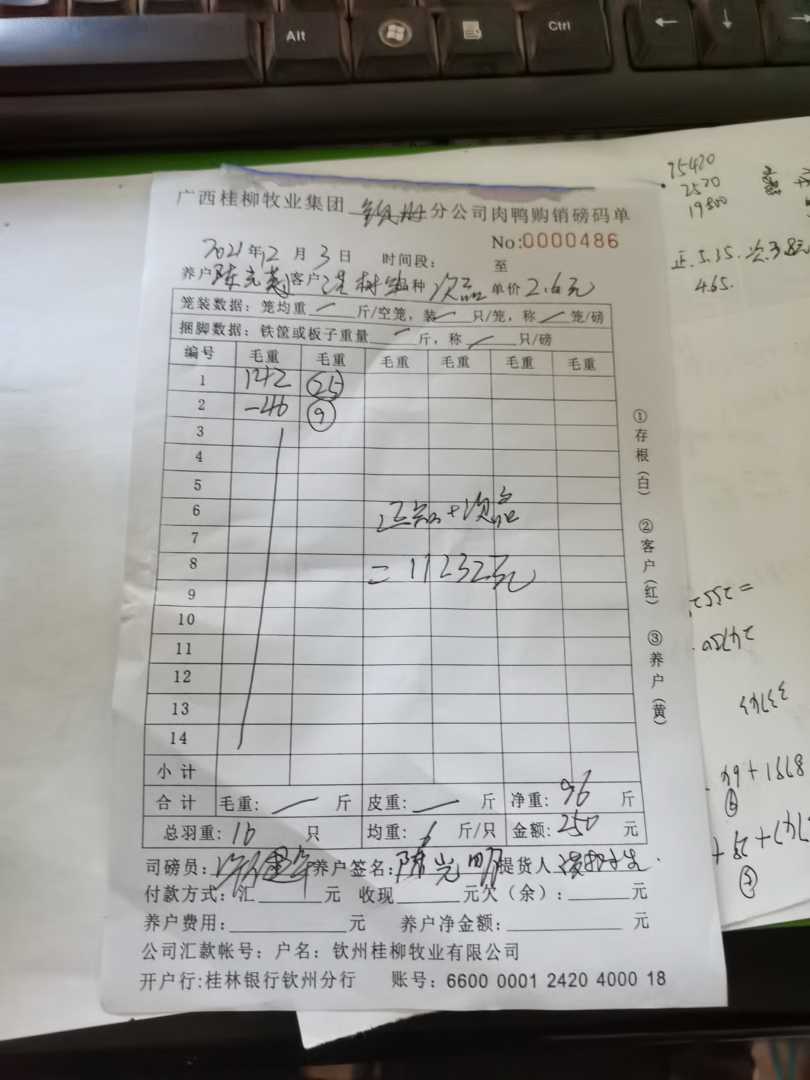 Alt
Ctrl
广西桂柳牧业集团 钦州 分公司肉鸭购销磅码单
No:0000486
2021年12月3日 时间段： 至
养户 客户 种 次品 单价 2.6元
笼装数据：笼均重 — 斤/空笼，装 — 只/笼，称 — 笼/磅
捆脚数据：铁筐或板子重量 — 斤，称 — 只/磅
编号 毛重 毛重 毛重 毛重 毛重 毛重
1 142 25
2 -46 9
3
4
5
6
正品+次品
7
8
=11232元
9
10
11
12
13
14
小计
合计 毛重：— 斤 皮重：— 斤 净重：96 斤
总羽重：16 只 均重：6 斤/只 金额：250 元
司磅员： 养户签名：陈光明 提货人
付款方式：汇 元 收现 元欠（余）： 元
养户费用： 元 养户净金额： 元
公司汇款帐号：户名：钦州桂柳牧业有限公司
开户行:桂林银行钦州分行 账号：6600 0001 2420 4000 18
①存根(白) ②客户(红) ③养户(黄)
25420
2520
19800
正.5.15.
4.65.